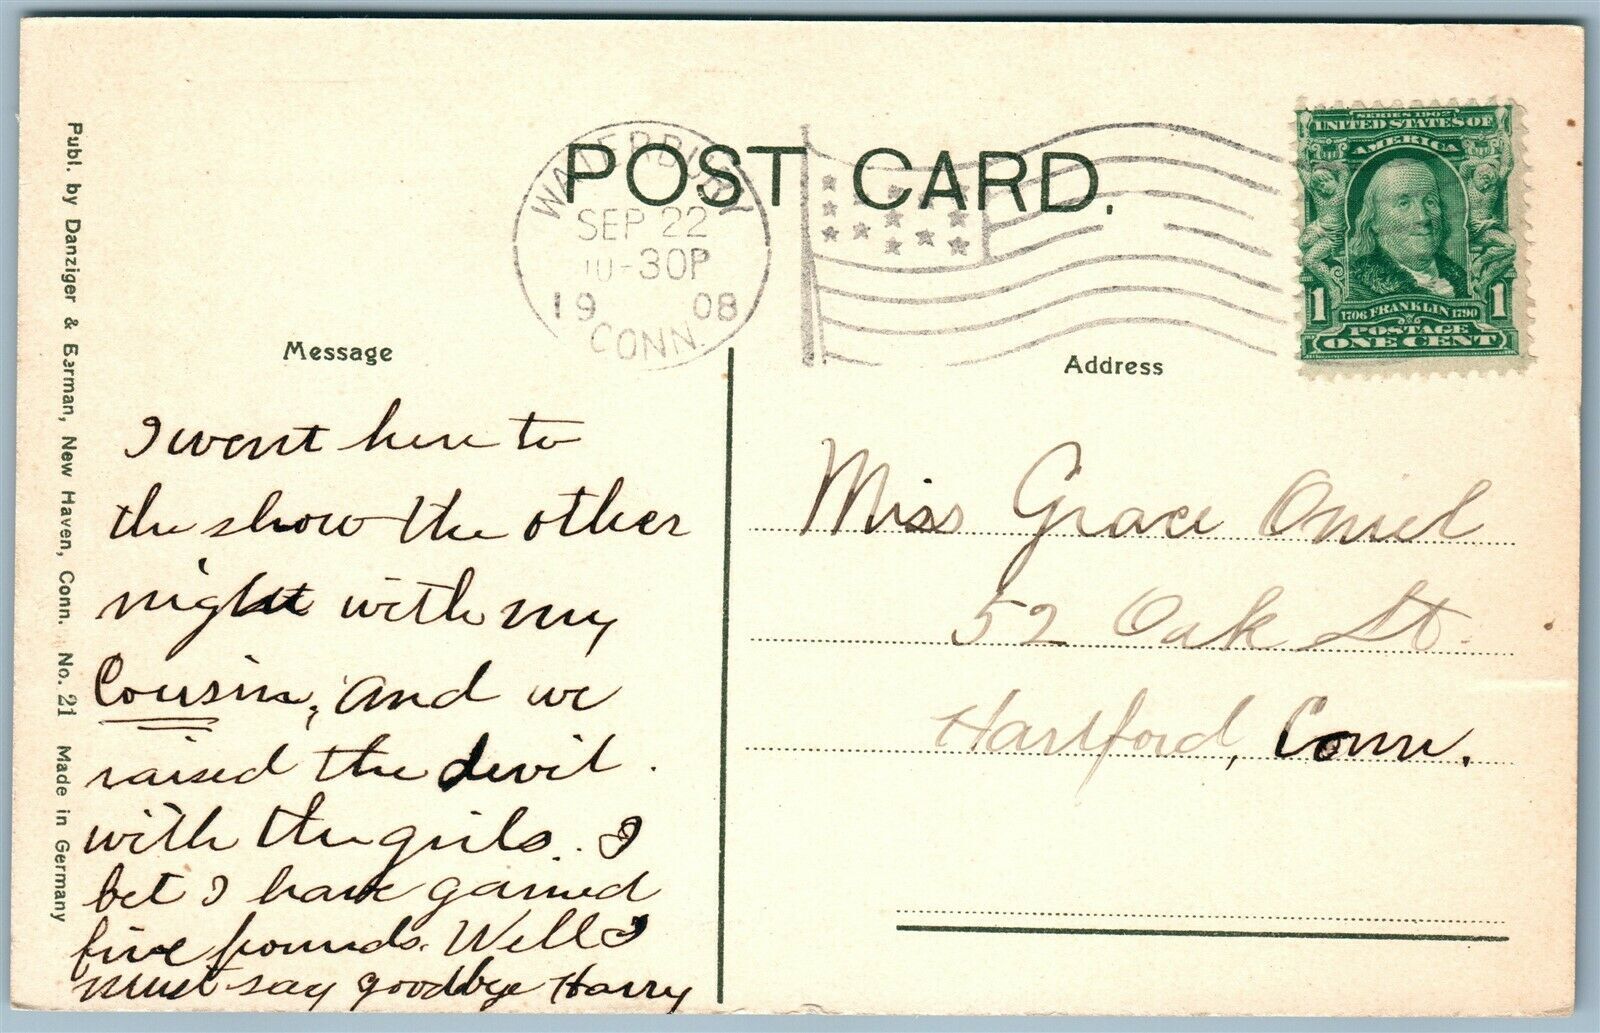 POST CARD.
WATERBURY
SEP 22
10-30P
19 08
CONN.
SERIES 1902
UNITED STATES OF
AMERICA
1 1
1706 FRANKLIN 1790
POSTAGE
ONE CENT
Publ. by Danziger & Berman, New Haven, Conn. No. 21 Made in Germany
Message
I went here to
the show the other
night with my
Cousin, and we
raised the devil.
with the girls. I
bet I have gained
five pounds. Well I
must say goodbye Harry
Address
Miss Grace Oniel
52 Oak St.
Hartford, Conn.